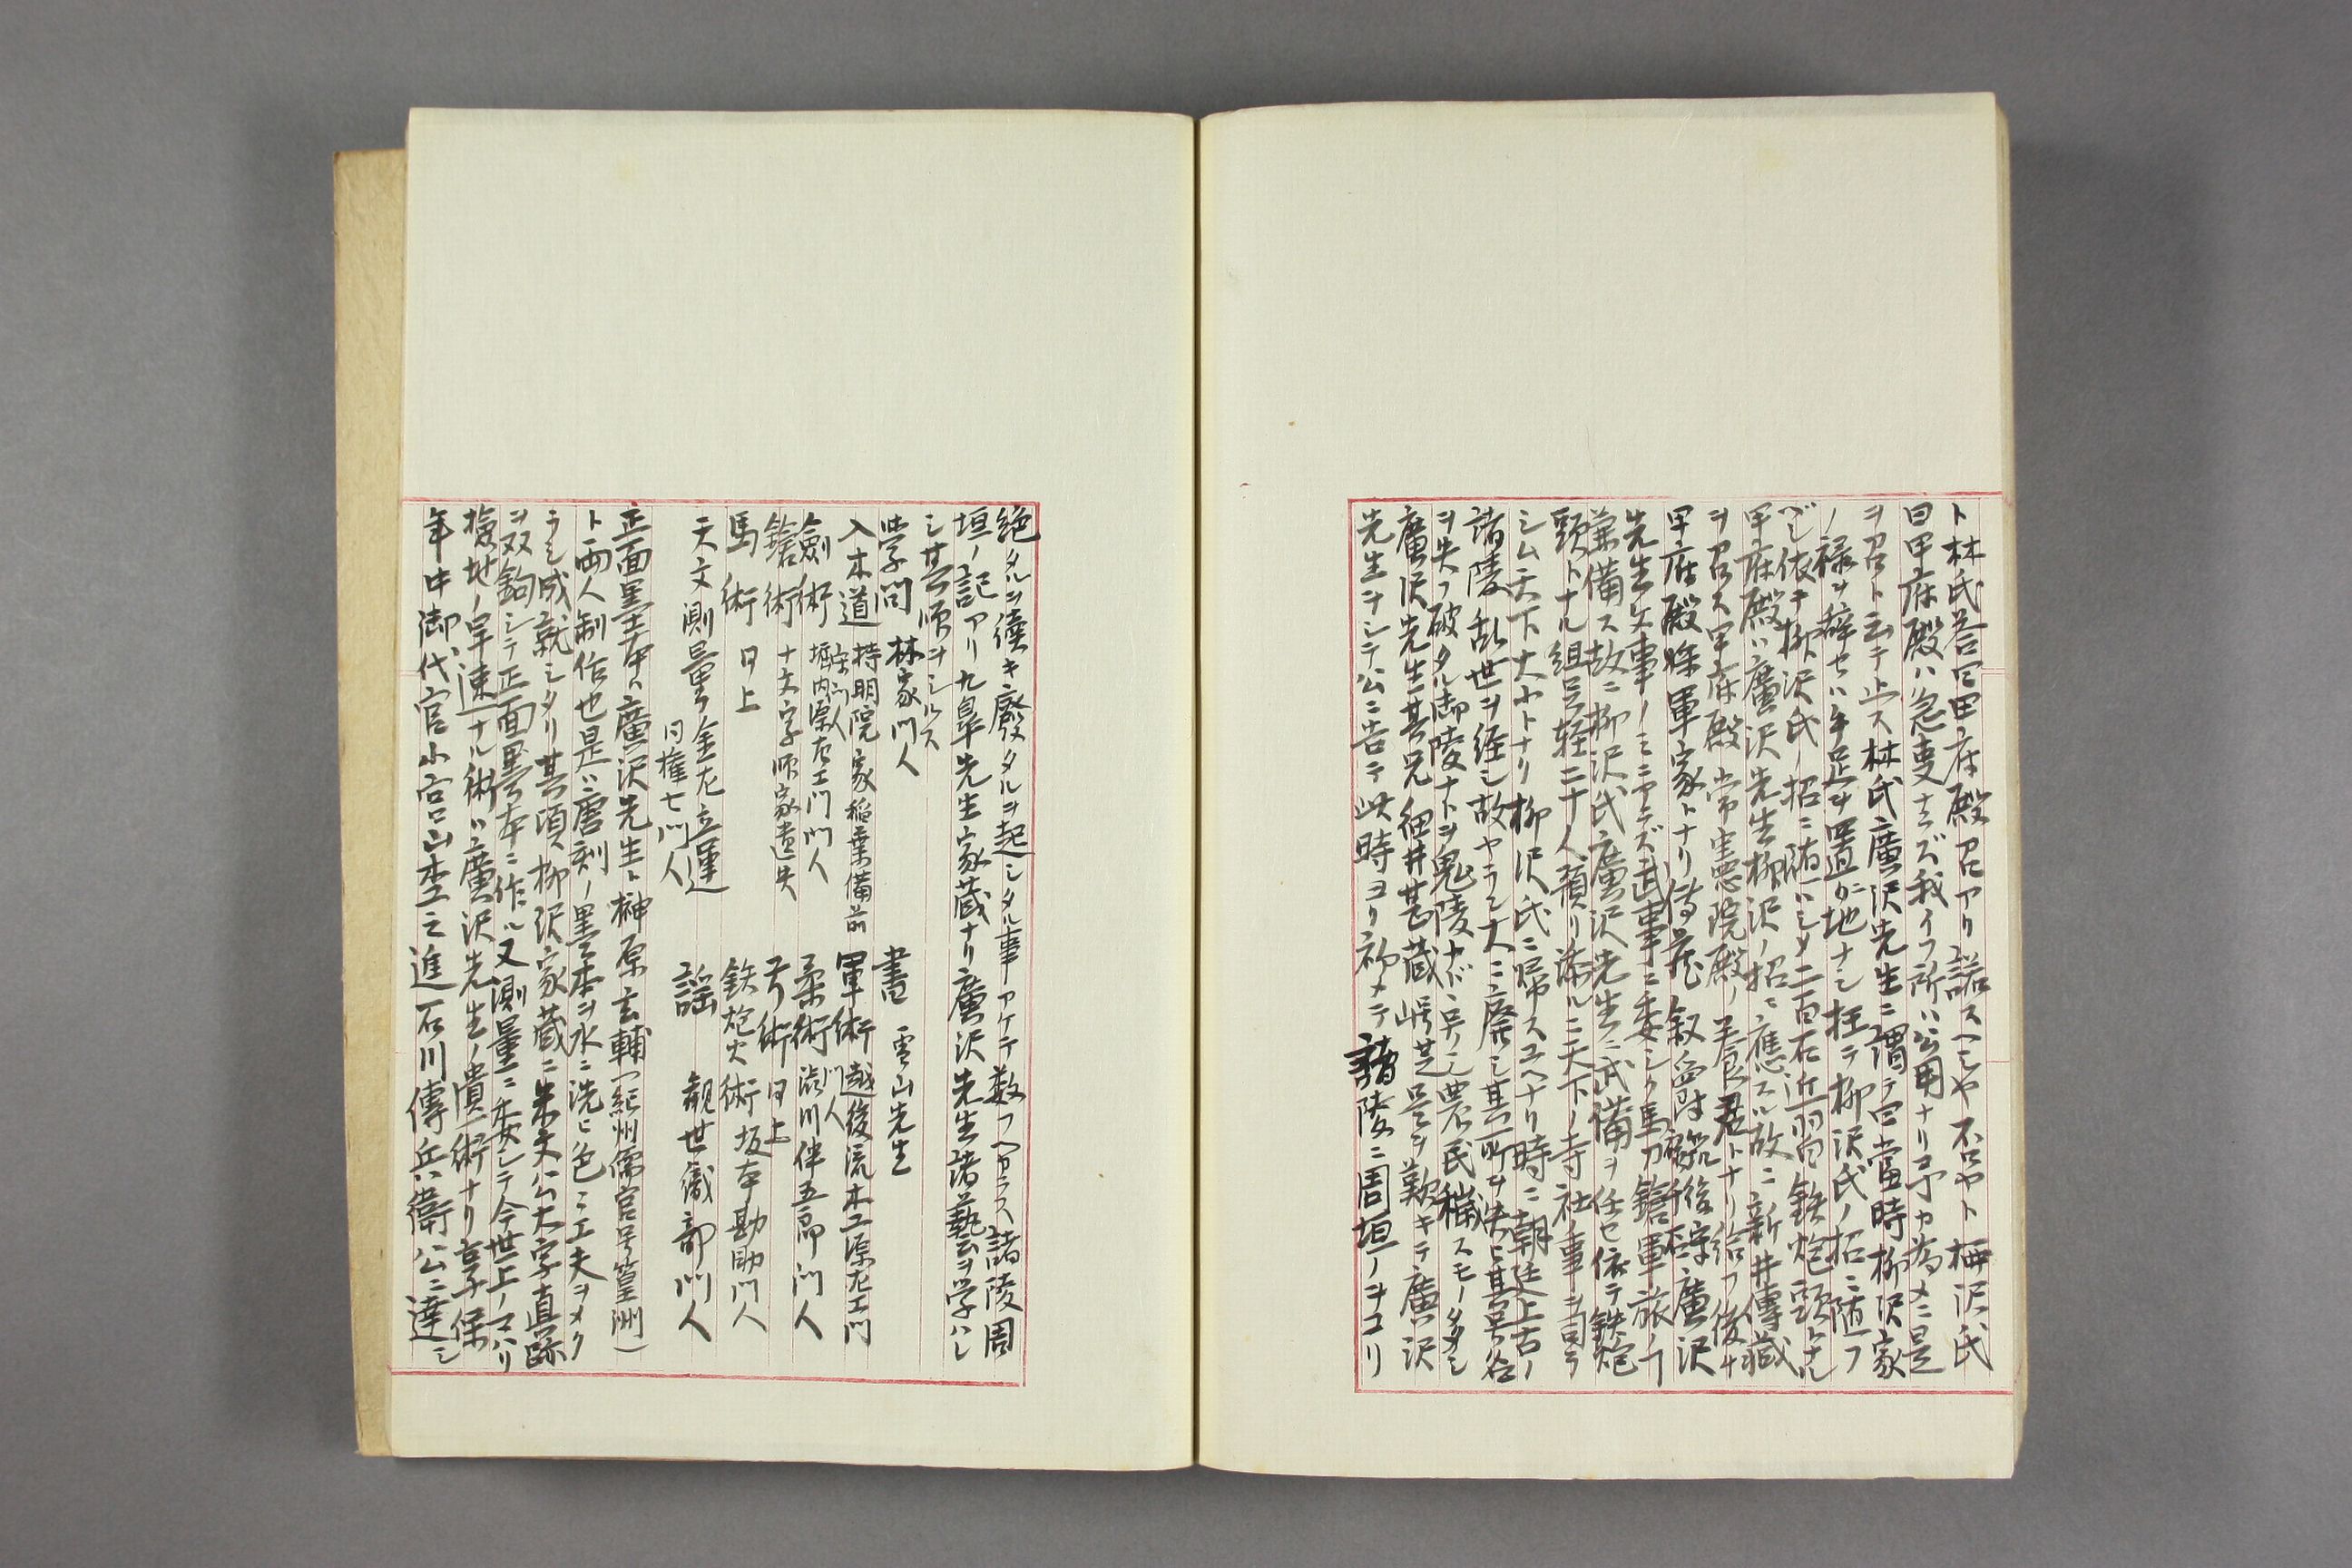 ト林氏答曰甲府殿召アリ諾スヘシヤ不召ヤト柳沢氏
曰甲府殿ハ急夐ナラズ我イフ所ハ公用ナリ予カ為メニ是
ヲ召ト云テ止ス林氏廣沢先生ニ謂テ曰當時柳沢家
ノ禄ヲ辞セハ手足ヲ置ガ地ナシ枉テ柳沢氏ノ招ニ随フ
ベシ依テ柳沢氏ノ招ニ随ハシメ二百石近習鉄炮頭トナル
甲府殿ハ廣沢先生柳沢ノ招ニ應スル故ニ新井傳蔵
ヲ召ス甲府殿常憲院殿ノ養君トナリ給フ後
甲府殿将軍家トナリ 叙爵 筑後守廣沢
先生文事ノミニアラズ武事ニ委シク馬刀鎗軍旅ノ
兼備ス故ニ柳沢氏廣沢先生ニ武備ヲ任セ依テ鉄炮
頭トナル組足軽二十人預リ 天下ノ寺社ノ事ヲ司ラ
シム天下大小トナリ柳沢氏ニ帰スユヘナリ時ニ朝廷上古ノ
諸陵乱世ヲ経シ故ヤラン大ニ廃シ其所ヲ失ヒ其号
ヲ失フ破タル御陵ナトヲ鬼陵ナド 農民穢スモノ多シ
廣沢先生其兄細井甚蔵 是ヲ歎キテ廣沢
先生ヲシテ公ニ告テ此時ヨリ初メテ諸陵ニ周垣ノヲコリ
絶タルヲ續キ廢タルヲ起シタル事アケテ数フヘカラス諸陵周
垣ノ記アリ九皐先生家蔵ナリ廣沢先生諸藝ヲ学ハレ
シ其師ヲシルス
学問 林家門人 書 雪山先生
入木道 持明院家稲葉備前守門人 軍術 越後流木工源左エ門門人
劔術 堀内源左エ門門人 柔術 澁川伴五郎門人
鎗術 十文字師家遺失 弓術 同上
馬術 同上 鉄炮火術 坂本勘助門人
天文測量 金左立運同権七門人 謡 観世織部門人
正面墨本ハ廣沢先生ト榊原玄輔(紀州儒官号篁洲)
ト両人制作也是ハ唐刻ノ墨本ヲ水ニ洗ヒ色ニ工夫ヲメク
ラシ成就シタリ其頃柳沢家蔵ニ朱文公大字真跡
ヲ双鈎シテ正面墨本ニ作ル又測量ニ委シテ今世上ノマハリ
撿地ノ早速ナル術ハ廣沢先生ノ遺術ナリ享保
年中御代官小宮山杢之進石川傳兵衛公ニ達シ